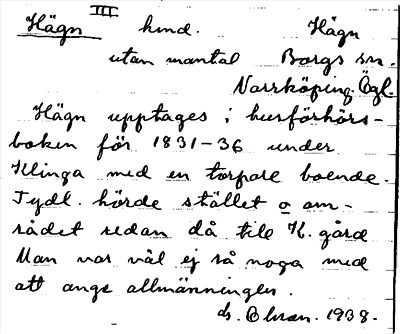 III
Hägn hmd. Hägn
utan mantal Borgs sn.
Norrköping. Ögl.
Hägn upptages i husförhörs-
boken för 1831-36 under
Klinga med en torpare boende.
Tydl. hörde stället o om-
rådet redan då till K. gård
Man var väl ej så noga med
att ange allmänningen.
1938.